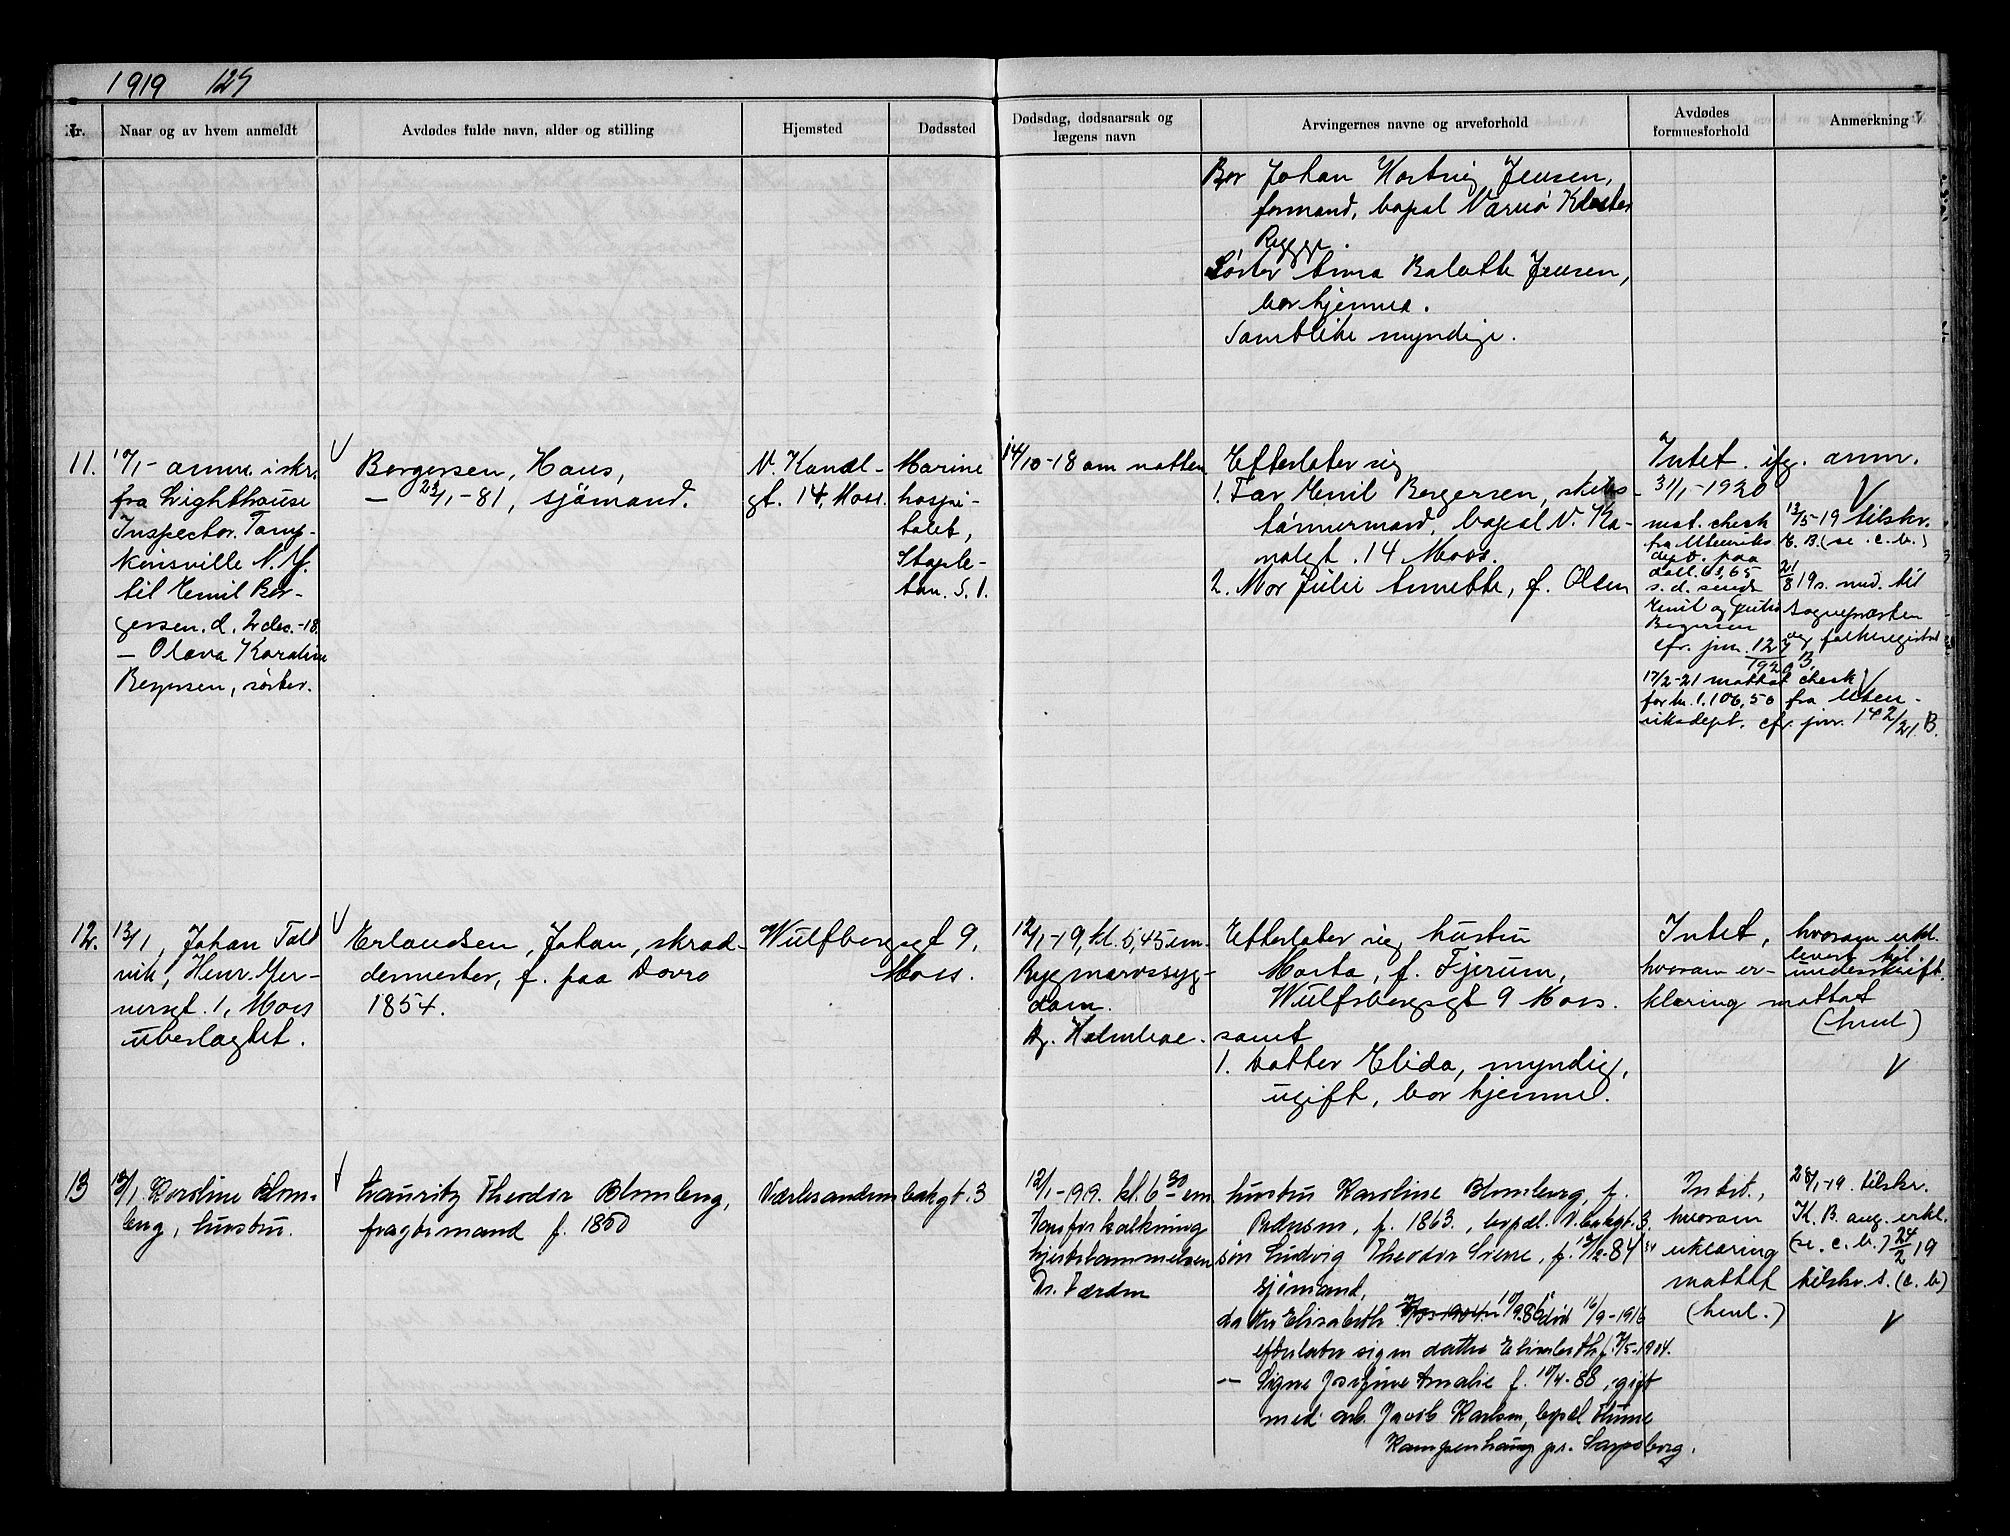 1919 129
Nr.
Naar og av hvem anmeldt
Avdødes fulde navn, alder og stilling
Hjemsted
Dødssted
Dødsdag, dødsaarsak og
lægens navn
Arvingernes navne og arveforhold
Avdødes
formuesforhold
Anmerkning
Bror Johan Hartvig Jensen,
formand, bopæl Værnø Kloster
Rygge.
Søster Anna Balette Jensen,
bor hjemme.
Samtlike myndige.
11.
10/1 - anm. i skr.
fra Lighthouse
Inspector. Tomp-
kinsville N.Y.
til Emil Ber-
gersen, d. 2 dec. -18.
— Olava Karoline
Bergersen, søster.
Bergersen, Hans,
— 23/1 - 81, sjømand.
N. Kanal-
gt. 14, Moss.
Marine
hospi-
talet,
Staple-
ton. S. I.
14/10 -18 om natten
Efterlater sig
1. Far Emil Bergersen, skibs-
tømmermand, bopæl N. Ka-
nalgt. 14 Moss.
2. Mor Julie Annette, f. Olsen
Intet. ifg. anm.
31/1 - 1920
mot. check
fra Utenriks
dept. paa
doll. 61,65
s. d. sendt
Emil og Julie
Bergersen
cfr. jnr. 127/1920 B.
17/2 -21 mottat check
for kr. 1.106,50 fra Uten-
riksdept. cfr. jnr. 142/21. B.
13/5 -19 tilskr.
E. B. (se. c. b.)
21/8 19 s. med. til
sognepræsten
og folkeregistret
12.
13/1, Johan Told
vik, Henr. Ger-
nersgt. 1, Moss
ubeslægtet.
Erlandsen, Johan, skræd-
dermester, f. paa Dovre
1854.
Wulfsbergsgt 9,
Moss.
12/1 -19, kl. 5,45 em.
Rygmarvssyg-
dom.
Dr. Holmboe.
Efterlater sig hustru
Marta, f. Fjerum,
Wulfsbergsgt 9 Moss.
samt
1. Datter Elida, myndig,
ugift, bor hjemme.
Intet,
hvorom er-
klæring mottat
hvorom erkl.
levert til
underskrift.
(henl)
13
13/1 Karoline Blom-
berg, hustru.
Lauritz Theodor Blomberg,
fragtemand f. 1850
Værlesanden
bakgt. 3
12/1 -1919. kl. 6 30 em
Aareforkalkning
hjertelammelsen
Dr. Færden
hustru Karoline Blomberg, f.
f. 1863., bopæl. V. bakgt. 3.
søn Ludvig Theodor f. 12/2-84
sjømand,
datter Elisabeth død 16/9 -1916
efterlater sig en datter Elisabeth f. 7/5-1904.
— Signe Josefine Amalie f. 10/4 -88, gift
med arb. Jacob Karlsen, bopæl Tune
Kampenhaug pr. Sarpsborg.
Intet,
hvorom
erklæring
mottat
(henl.)
28/1 -19. tilskr.
K. B. ang. erkl.
(se. c. b.) 24/2 19
tilskr. s. (c. b)